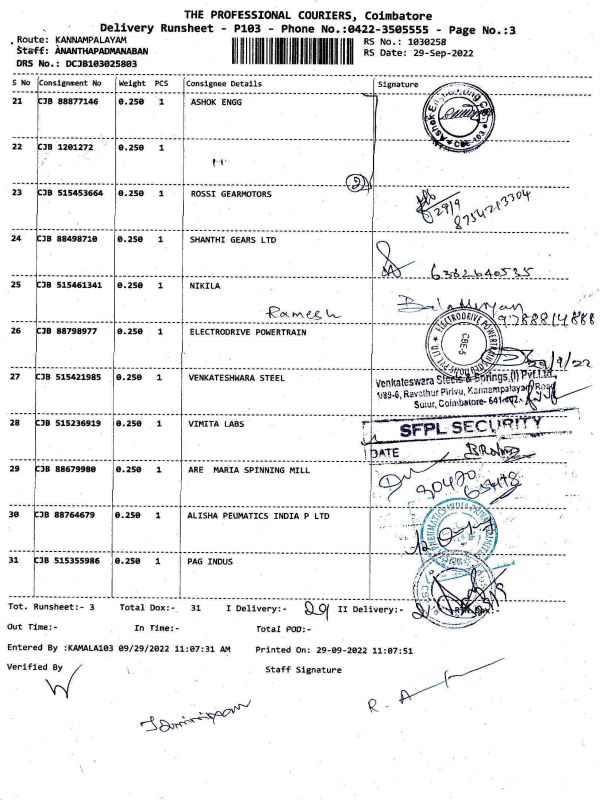 THE PROFESSIONAL COURIERS, Coimbatore
Delivery Runsheet - P103 - Phone No.:0422-3505555 - Page No.:3
Route: KANNAMPALAYAM
RS No.: 1030258
Staff: ANANTHAPADMANABAN
RS Date: 29-Sep-2022
DRS No.: DCJB103025803
S No Consignment No Weight PCS Consignee Details Signature
21 CJB 88877146 0.250 1 ASHOK ENGG
CBE-103
22 CJB 1201272 0.250 1
23 CJB 515453664 0.250 1 ROSSI GEARMOTORS
29/9
8754213304
24 CJB 88498710 0.250 1 SHANTHI GEARS LTD
6382640535
25 CJB 515461341 0.250 1 NIKILA
Ramesh
9788814888
26 CJB 88798977 0.250 1 ELECTRODRIVE POWERTRAIN
ELECTRODRIVE POWERTRAIN
CBE-5
29/9/22
27 CJB 515421985 0.250 1 VENKATESHWARA STEEL
Venkateswara Steels & Springs (I) Pvt.Ltd.,
1/89-6, Ravathur Pirivu, Kannampalayam Road
Sulur, Coimbatore- 641402
28 CJB 515236919 0.250 1 VIMITA LABS
SFPL SECURITY
DATE
29 CJB 88679980 0.250 1 ARE MARIA SPINNING MILL
30 CJB 88764679 0.250 1 ALISHA PEUMATICS INDIA P LTD
31 CJB 515355986 0.250 1 PAG INDUS
Tot. Runsheet:- 3 Total Dox:- 31 I Delivery:- 29 II Delivery:- 2
Out Time:- In Time:- Total POD:-
Entered By :KAMALA103 09/29/2022 11:07:31 AM Printed On: 29-09-2022 11:07:51
Verified By Staff Signature